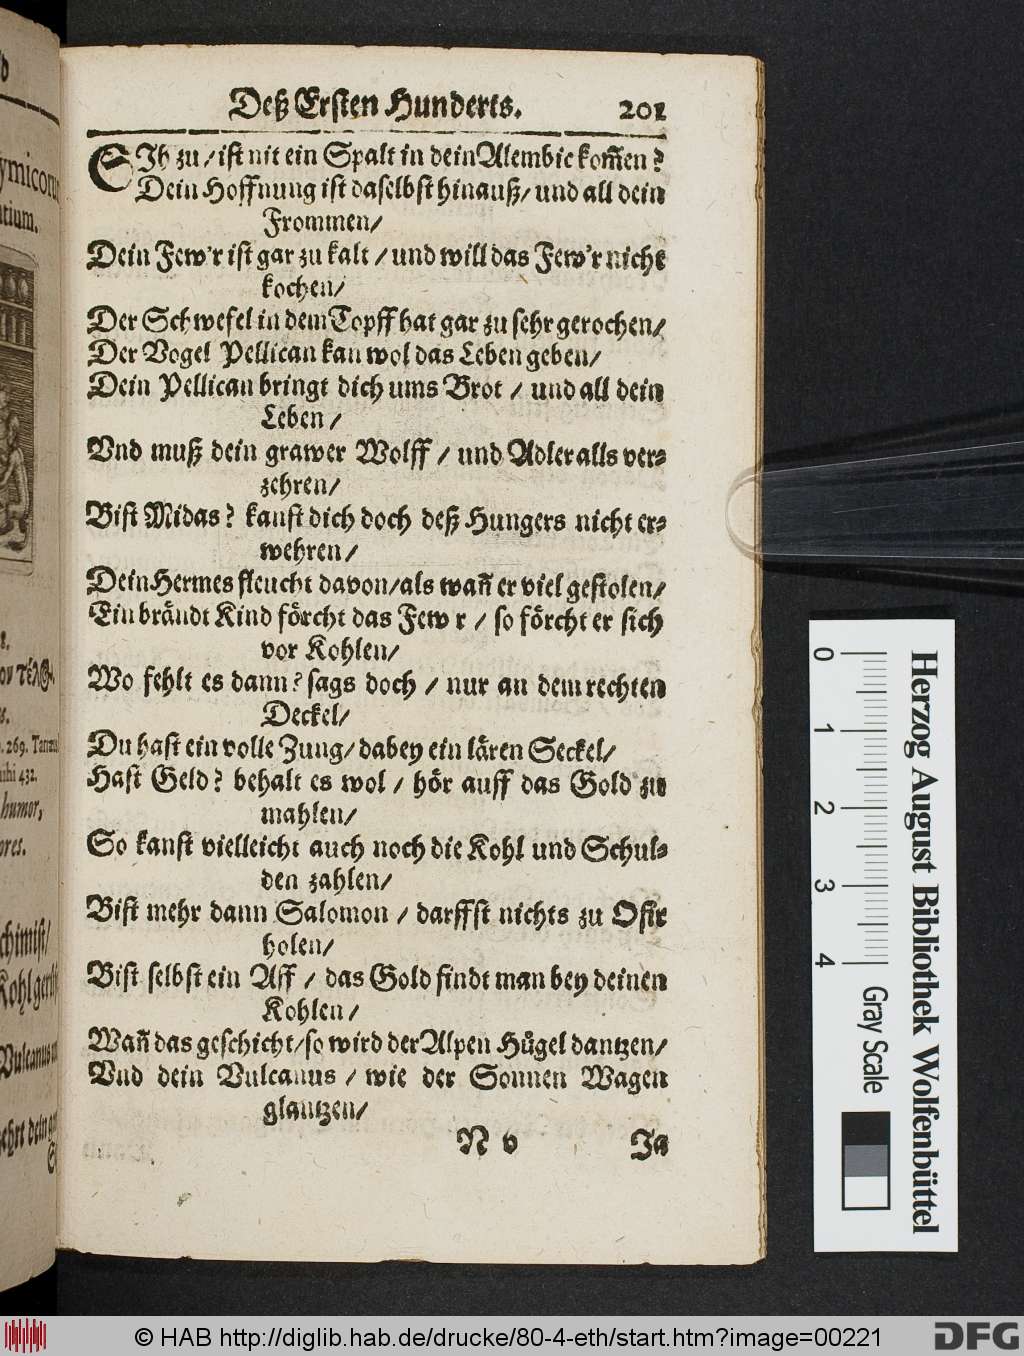 Deß Ersten Hunderts. 201
SIh zu / ist nit ein Spalt in dein Alembic kom̃en?
Dein Hoffnung ist daselbst hinauß / und all dein
Frommen /
Dein Few'r ist gar zu kalt / und will das Few'r nicht
kochen /
Der Schwefel in dem Topff hat gar zu sehr gerochen /
Der Vogel Pellican kan wol das Leben geben /
Dein Pellican bringt dich ums Brot / und all dein
Leben /
Vnd muß dein grawer Wolff / und Adler alls ver-
zehren /
Bist Midas? kanst dich doch deß Hungers nicht er-
wehren /
Dein Hermes fleucht davon / als wañ er viel gestolen /
Ein brändt Kind förcht das Few'r / so förcht er sich
vor Kohlen /
Wo fehlt es dann? sags doch / nur an dem rechten
Deckel /
Du hast ein volle Zung / dabey ein lären Seckel /
Hast Geld? behalt es wol / hör auff das Gold zu
mahlen /
So kanst vielleicht auch noch die Kohl und Schul-
den zahlen /
Bist mehr dann Salomon / darffst nichts zu Ofir
holen /
Bist selbst ein Aff / das Gold findt man bey deinen
Kohlen /
Wañ das geschicht / so wird der Alpen Hügel dantzen /
Vnd dein Vulcanus / wie der Sonnen Wagen
glantzen /
N v Ja
ymicorum
τέλος.
269.
432.
humor,
ores.
chimist /
Vulcanus
dein
0 1 2 3 4
Gray Scale
Herzog August Bibliothek Wolfenbüttel
© HAB http://diglib.hab.de/drucke/80-4-eth/start.htm?image=00221
DFG